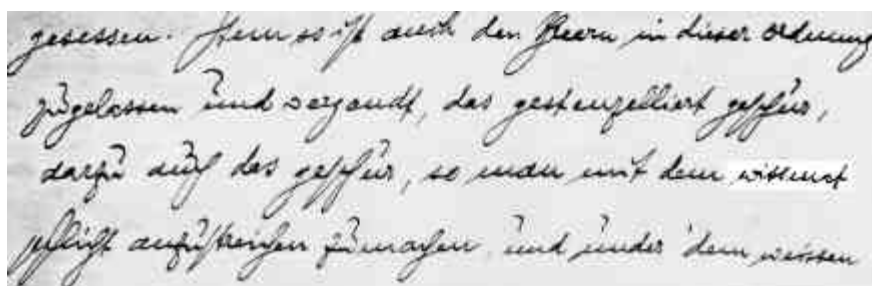 gesessen. Item so ist auch den Heern in dieser ordnung
zugelassen und vergandt, das gestenzelliert geschür,
darzu auch das geschür, so man mit dem wissmet
pflicht anzustreichen zumachen und under dem weissen